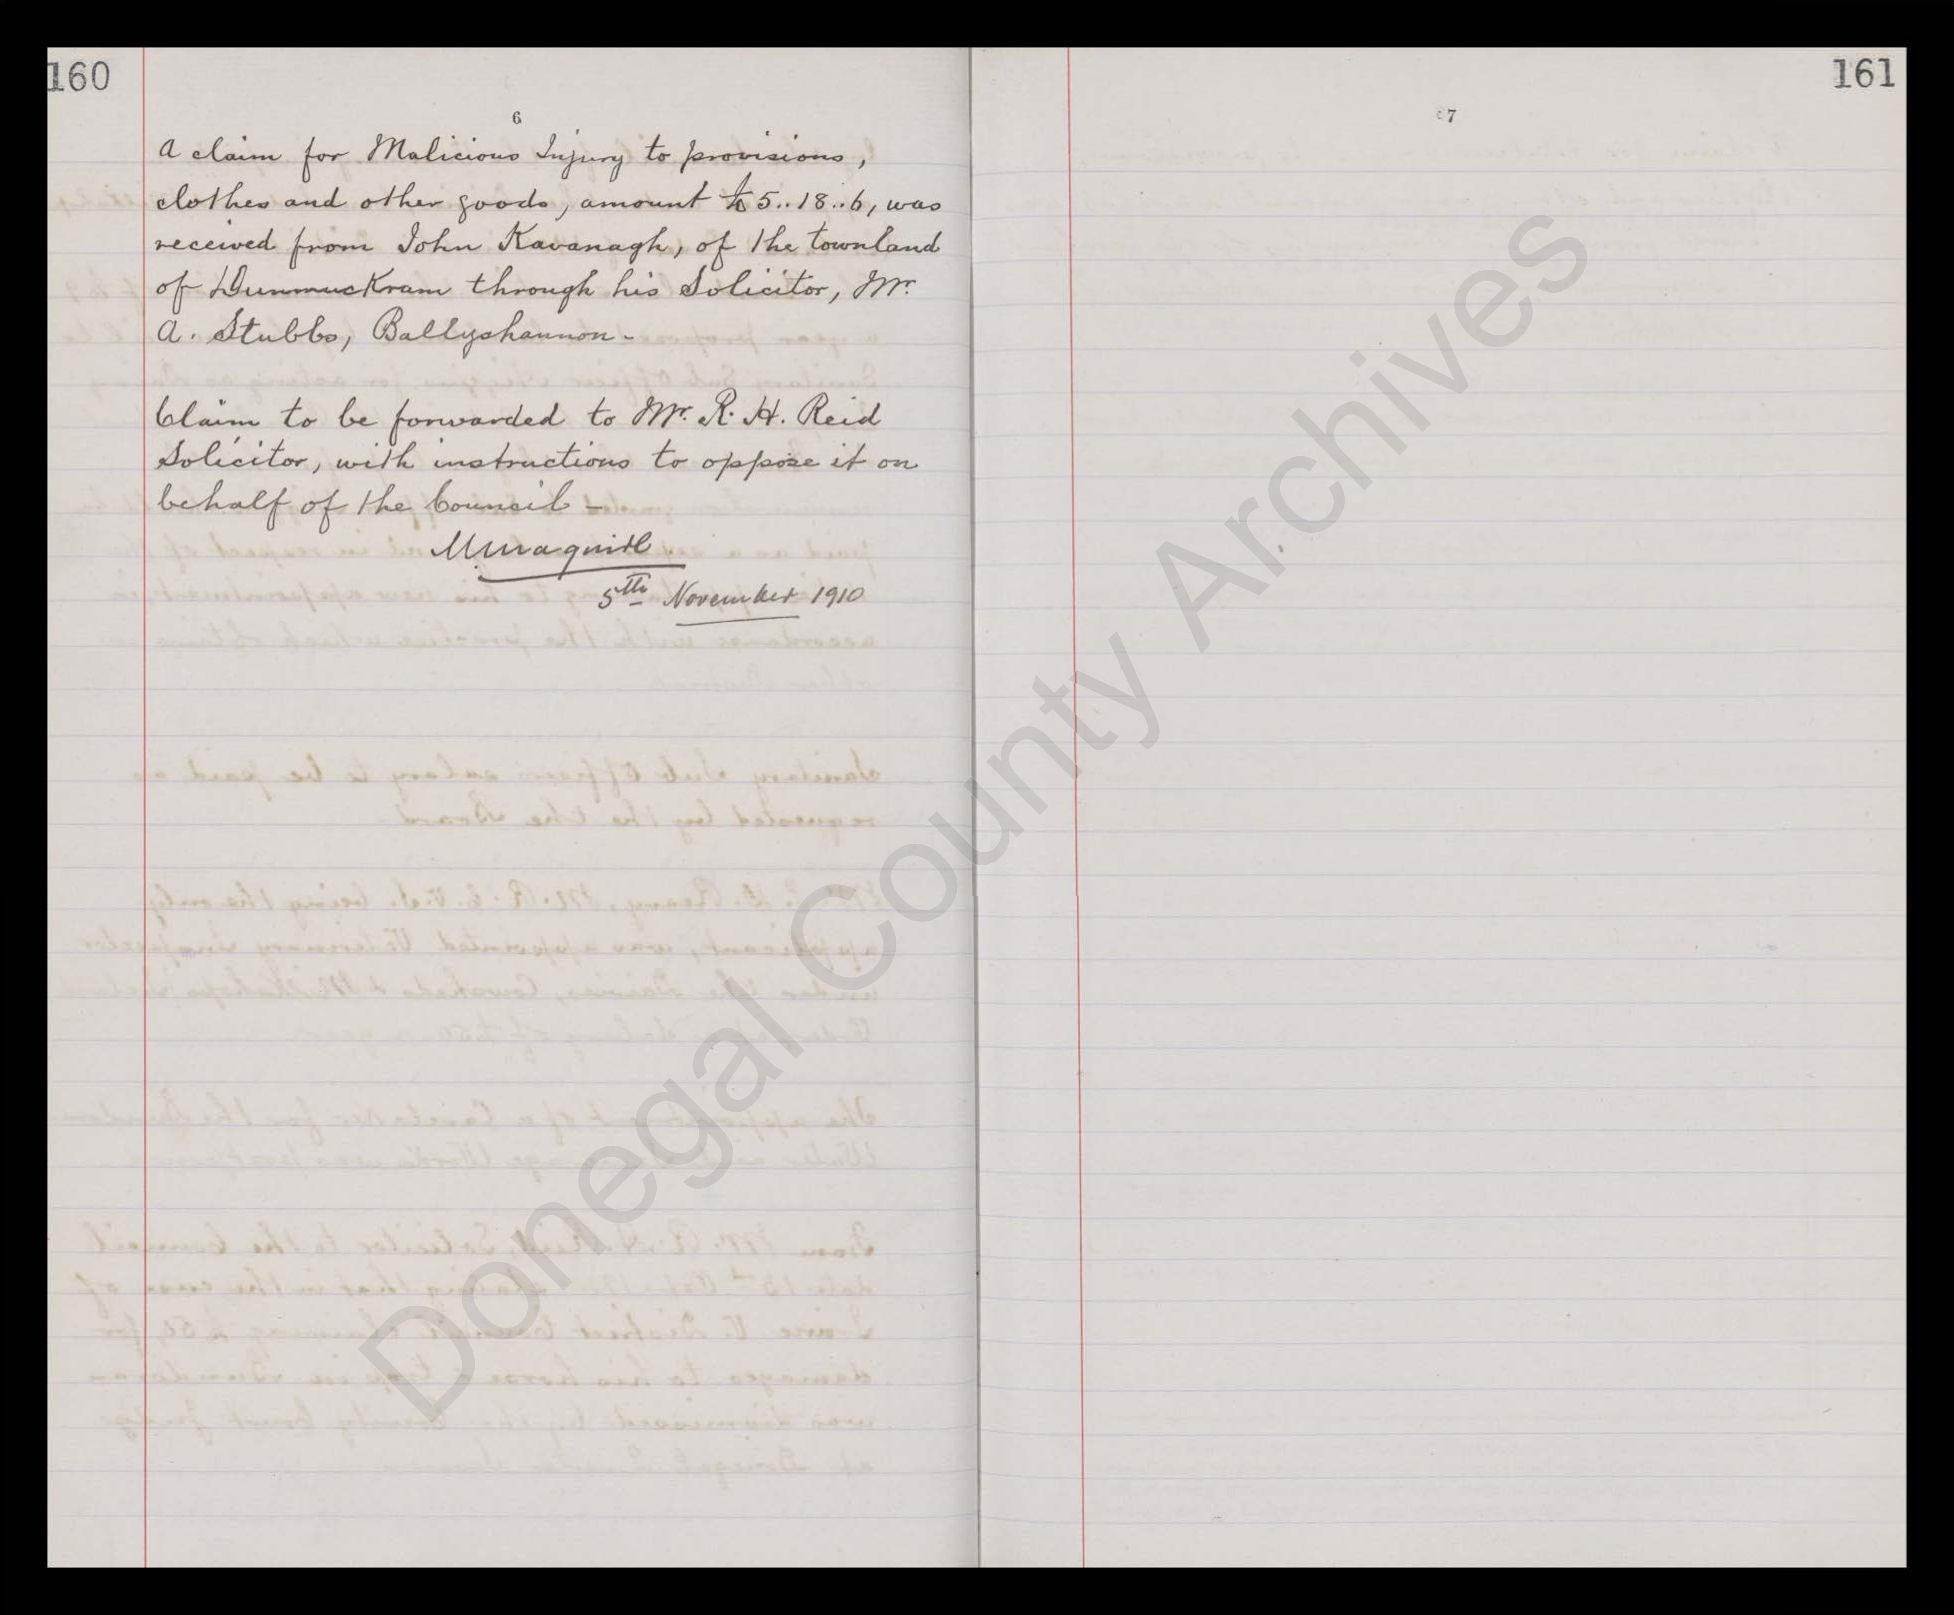 160
6
A claim for Malicious Injury to provisions,
clothes and other goods, amount £5..18..6, was
received from John Kavanagh, of the townland
of Dunmuckram through his Solicitor, Mr.
A. Stubbs, Ballyshannon -
Claim to be forwarded to Mr. R. H. Reid
Solicitor, with instructions to oppose it on
behalf of the Council -
5th November 1910
161
7
Donegal County Archives